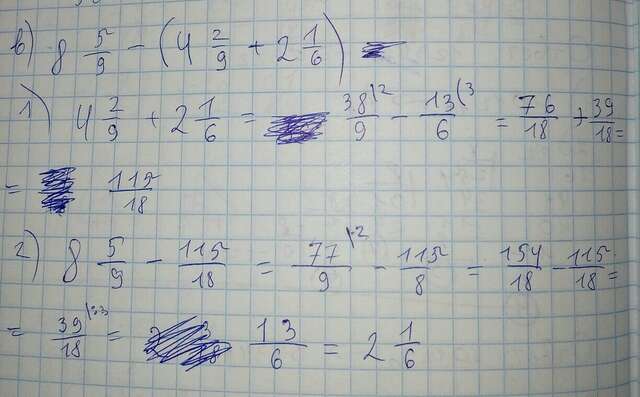 в) 8 5/9 - (4 2/9 + 2 1/6)
1) 4 2/9 + 2 1/6 = 38/9 |2 - 13/6 (3 = 76/18 + 39/18 =
= 115/18
2) 8 5/9 - 115/18 = 77/9 |·2 - 115/8 = 154/18 - 115/18 =
= 39/18 |:3 = 13/6 = 2 1/6